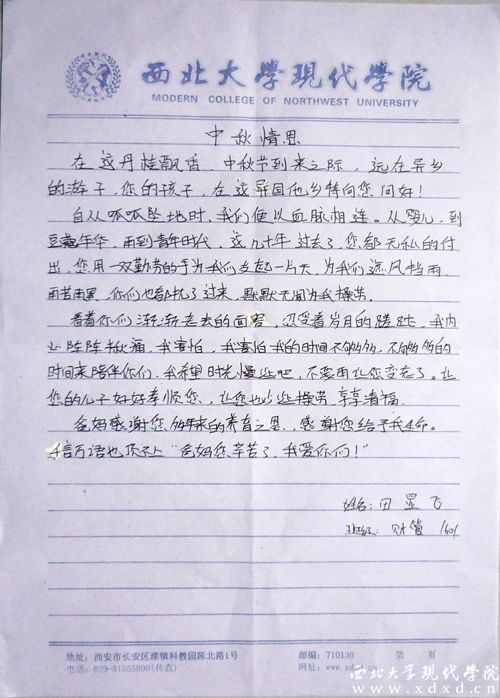 西北大学现代学院
MODERN COLLEGE OF NORTHWEST UNIVERSITY
中秋情思
在这丹桂飘香,中秋节到来之际,远在异乡
的游子,您的孩子,在这异国他乡特向您问好!
自从呱呱坠地时,我们便以血脉相连。从婴儿,到
豆蔻年华,再到青年时代,这几十年过去了,您都无私的付
出,您用一双勤劳的手为我们支起一片天,为我们遮风挡雨,
再苦再累,你们也都扛了过来,默默无闻为我操劳。
看着你们渐渐老去的面容,忍受着岁月的蹉跎,我内
心阵阵揪痛,我害怕,我害怕我的时间不够多,不够多的
时间来陪伴你们,我希望时光慢些吧,不要再让您变老了。让
您的儿子好好孝顺您、让您也少些操劳,享享清福。
爸妈感谢您多年来的养育之恩、感谢您给予我生命。
千言万语也顶不上“爸妈您辛苦了,我爱你们!”
姓名:田昱飞
班级:财管1601
地址:西安市长安区滦镇科教园陈北路1号
邮编:710130
第 页
电话:029-81555800(传真)
网址:www.xd
西北大学现代学院
www.xdxd.cn